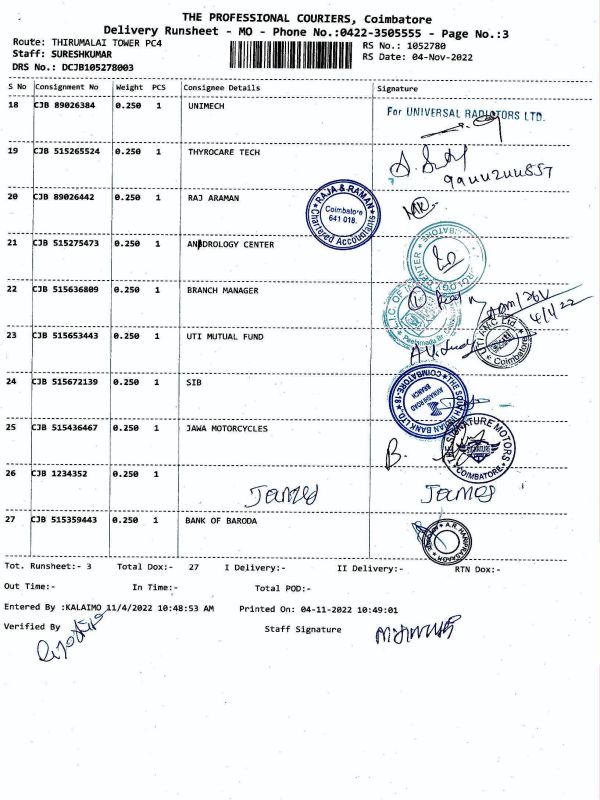 THE PROFESSIONAL COURIERS, Coimbatore
Delivery Runsheet - MO - Phone No.:0422-3505555 - Page No.:3
Route: THIRUMALAI TOWER PC4 RS No.: 1052780
Staff: SURESHKUMAR RS Date: 04-Nov-2022
DRS No.: DCJB105278003
S No Consignment No Weight PCS Consignee Details Signature
18 CJB 89026384 0.250 1 UNIMECH For UNIVERSAL RADIATORS LTD.
19 CJB 515265524 0.250 1 THYROCARE TECH
20 CJB 89026442 0.250 1 RAJ ARAMAN
RAJA & RAMAN
Coimbatore
641 018.
Chartered Accountants
21 CJB 515275473 0.250 1 ANDROLOGY CENTER
22 CJB 515636809 0.250 1 BRANCH MANAGER
4/11/22
23 CJB 515653443 0.250 1 UTI MUTUAL FUND
Coimbatore
24 CJB 515672139 0.250 1 SIB
COIMBATORE-18
AVINASHI ROAD
BRANCH
25 CJB 515436467 0.250 1 JAWA MOTORCYCLES
SIGNATURE MOTORS
COIMBATORE
26 CJB 1234352 0.250 1 James James
27 CJB 515359443 0.250 1 BANK OF BARODA
Tot. Runsheet:- 3 Total Dox:- 27 I Delivery:- II Delivery:- RTN Dox:-
Out Time:- In Time:- Total POD:-
Entered By :KALAIMO 11/4/2022 10:48:53 AM Printed On: 04-11-2022 10:49:01
Verified By Staff Signature